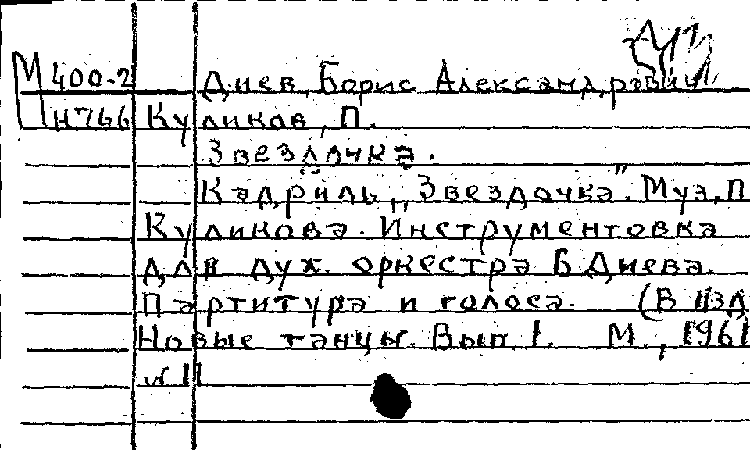 М 400-2 Диев, Борис Александрович
Н766 Куликов, П.
Звездочка.
Кадриль „Звездочка". Муз. П
Куликова. Инструментовка
для дух. оркестра Б Диева.
Партитура и голоса. (В изд
Новые танцы. Вып. 1. М., 1961
№ 11